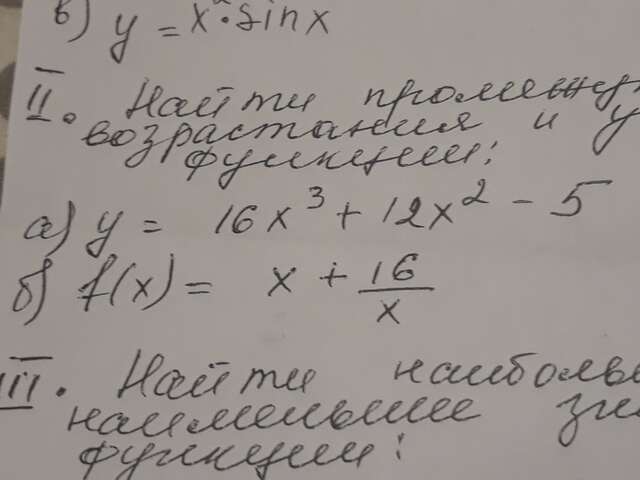 в) y = x² · sin x
II. Найти промежу
возрастания и у
функции:
а) y = 16x³ + 12x² - 5
б) f(x) = x + 16/x
III. Найти наиболь
наименьшее зн
функции: